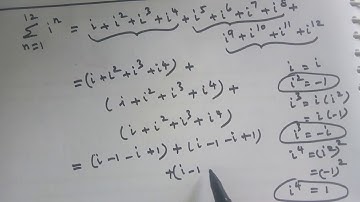 12
∑ iⁿ = i + i² + i³ + i⁴ + i⁵ + i⁶ + i⁷ + i⁸ +
n=1
i⁹ + i¹⁰ + i¹¹ + i¹²
= (i + i² + i³ + i⁴) +
(i + i² + i³ + i⁴) +
(i + i² + i³ + i⁴)
= (i - 1 - i + 1) + (i - 1 - i + 1)
+ (i - 1
i = i
i² = -1
i³ = i(i²)
= i(-1)
i³ = -i
i⁴ = (i²)²
= (-1)²
i⁴ = 1